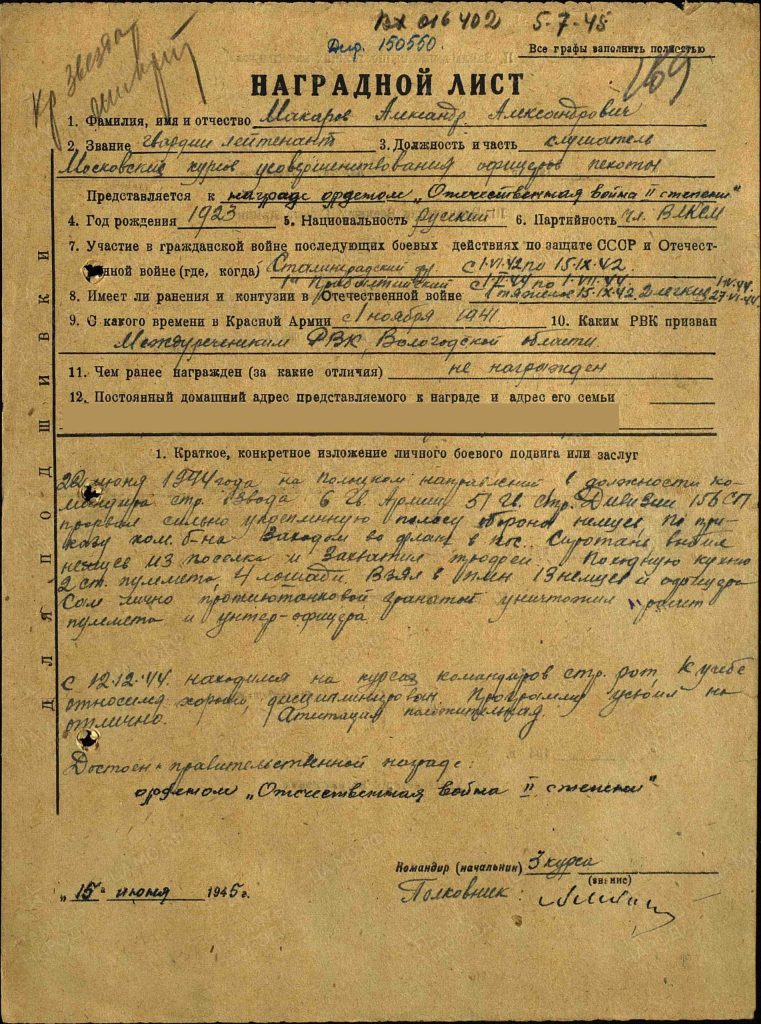 Вх 016402 5-7-45
Дир. 150550.
Все графы заполнить полностью
Кр Звезда
169
НАГРАДНОЙ ЛИСТ
1. Фамилия, имя и отчество Макаров Александр Александрович
2. Звание гвардии лейтенант 3. Должность и часть слушатель
Московских курсов усовершенствования офицеров пехоты
Представляется к награде орденом „Отечественная война II степени"
4. Год рождения 1923 5. Национальность русский 6. Партийность чл. ВЛКСМ
7. Участие в гражданской войне последующих боевых действиях по защите СССР и Отечест-
венной войне (где, когда) Сталинградский фр. с 1-VI-42 по 15-IX-42.
1й Прибалтийский с 1-V-44 по 1-VII-44.
8. Имеет ли ранения и контузии в Отечественной войне 1 тяжелое 15-IX-42 2 легких 27-VI-44
9. С какого времени в Красной Армии с ноября 1941 10. Каким РВК призван
Междуреченским РВК, Вологодской области.
11. Чем ранее награжден (за какие отличия) не награжден
12. Постоянный домашний адрес представляемого к награде и адрес его семьи
ДЛЯ ПОДШИВКИ
1. Краткое, конкретное изложение личного боевого подвига или заслуг
22 июня 1944 года на Полоцком направлении в должности ко-
мандира стр. взвода 6 Гв. Армии 51 Гв. стр. Дивизии 156 СП
прорвал сильно укрепленную полосу обороны немцев, По при-
казу ком. б-на заходом во фланг в пос. Сиротане, выбил
немцев из поселка и захватил трофеи Походную кухню
2 ст. пулемета, 4 лошади. Взял в плен 13 немцев и офицера
Сам лично противотанковой гранатой уничтожил расчет
пулемета и унтер-офицера
С 12.12.44. находился на курсах командиров стр. рот, К учебе
относился хорошо, дисциплинирован. Программу усвоил на
отлично. Атестация положительная.
Достоен правительственной награде:
орденом „Отечественная война II степени"
Командир (начальник) 3 курса
„15" июня 1945 г.
Полковник: